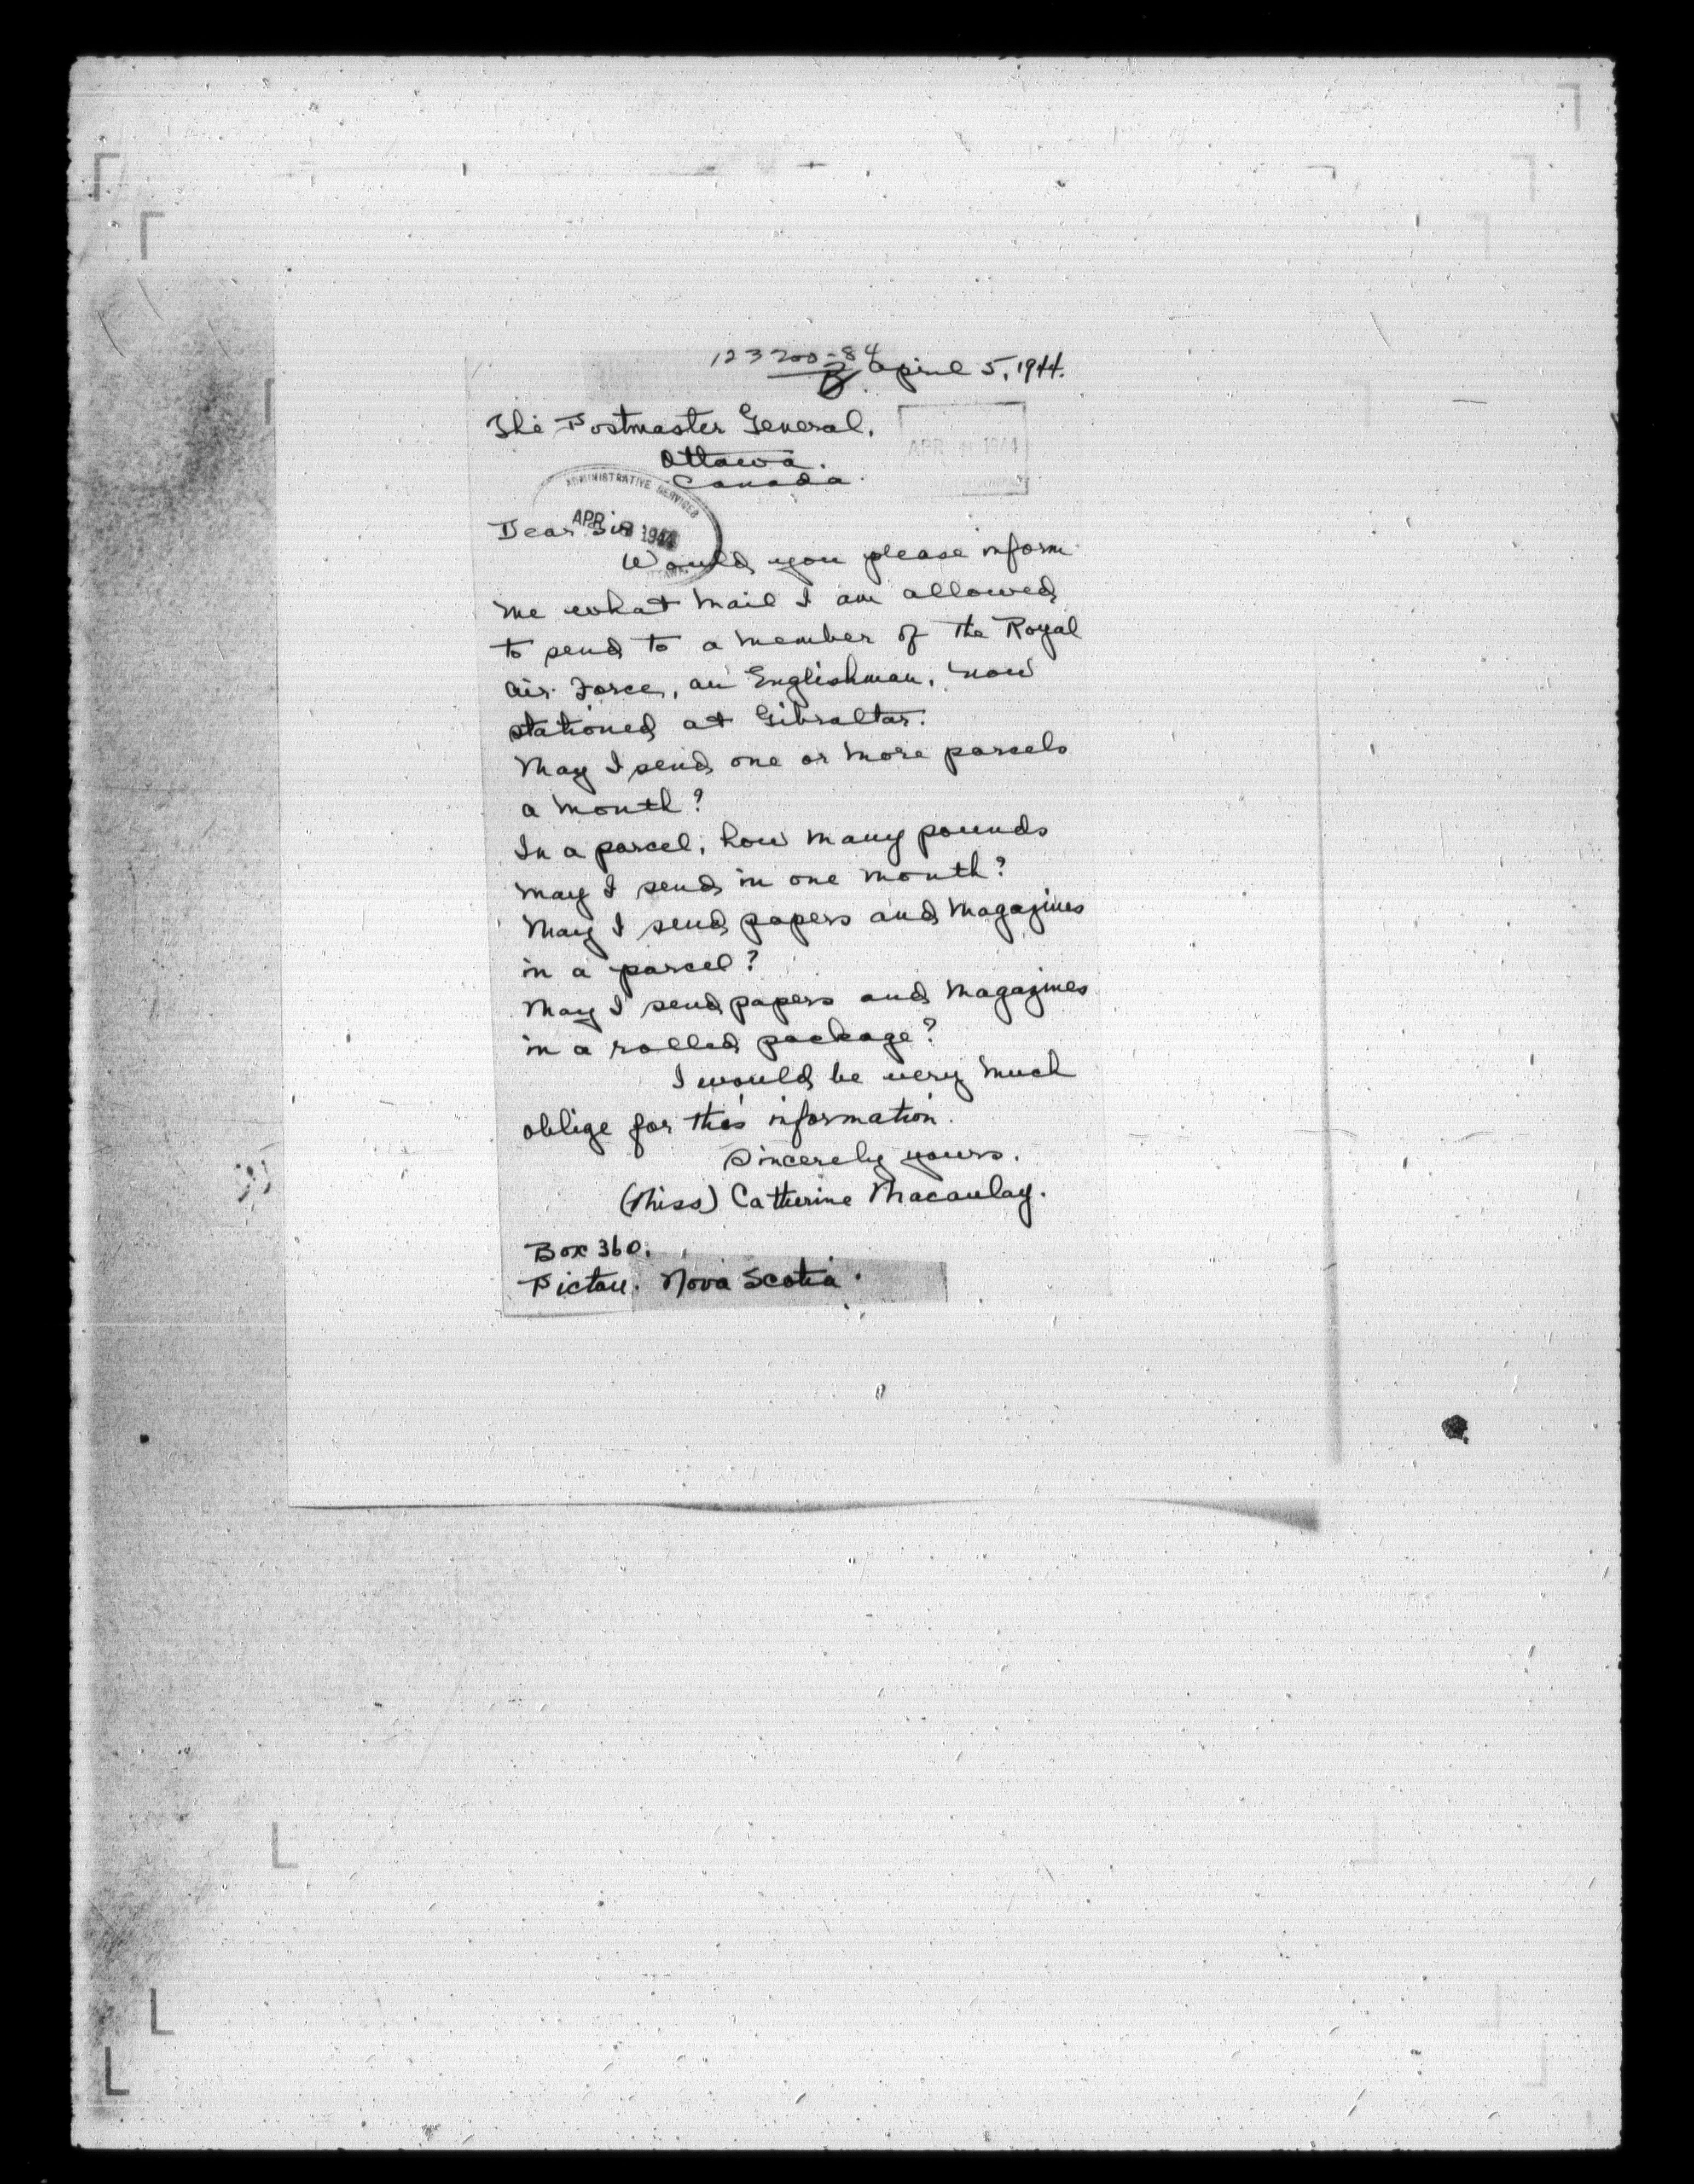 123200-84
B April 5, 1944.
The Postmaster General,
Ottawa.
Canada.
APR 1944
ADMINISTRATIVE SERVICES
APR 1944
Dear Sir
Would you please inform
me what mail I am allowed
to send to a member of the Royal
Air Force, an Englishman, now
stationed at Gibraltar.
May I send one or more parcels
a month?
In a parcel, how many pounds
may I send in one month?
May I send papers and magazines
in a parcel?
May I send papers and magazines
in a rolled package?
I would be very much
oblige for this information.
Sincerely yours.
(Miss) Catherine Macaulay.
Box 360.
Pictou. Nova Scotia.